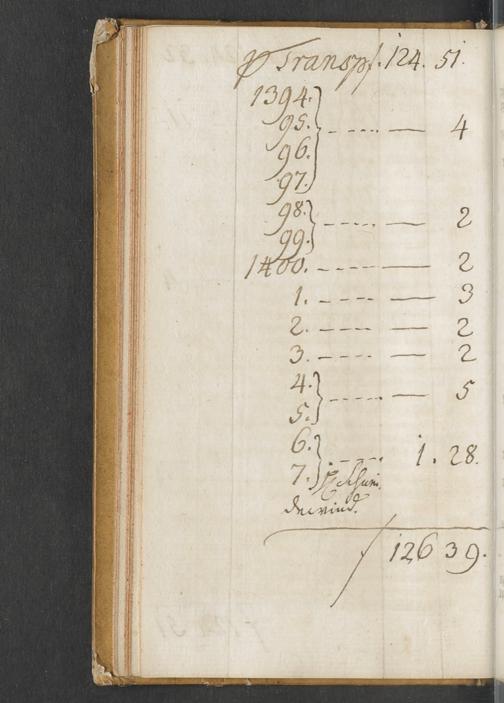 Transp. 124. 51.
1394.
95. ---- — 4
96.
97.
98. ---- — 2
99.
1400. ---- — 2
1. ---- — 3
2. ---- — 2
3. ---- — 2
4. ---- — 5
5.
6. ---- 1. 28.
7.
126 39.